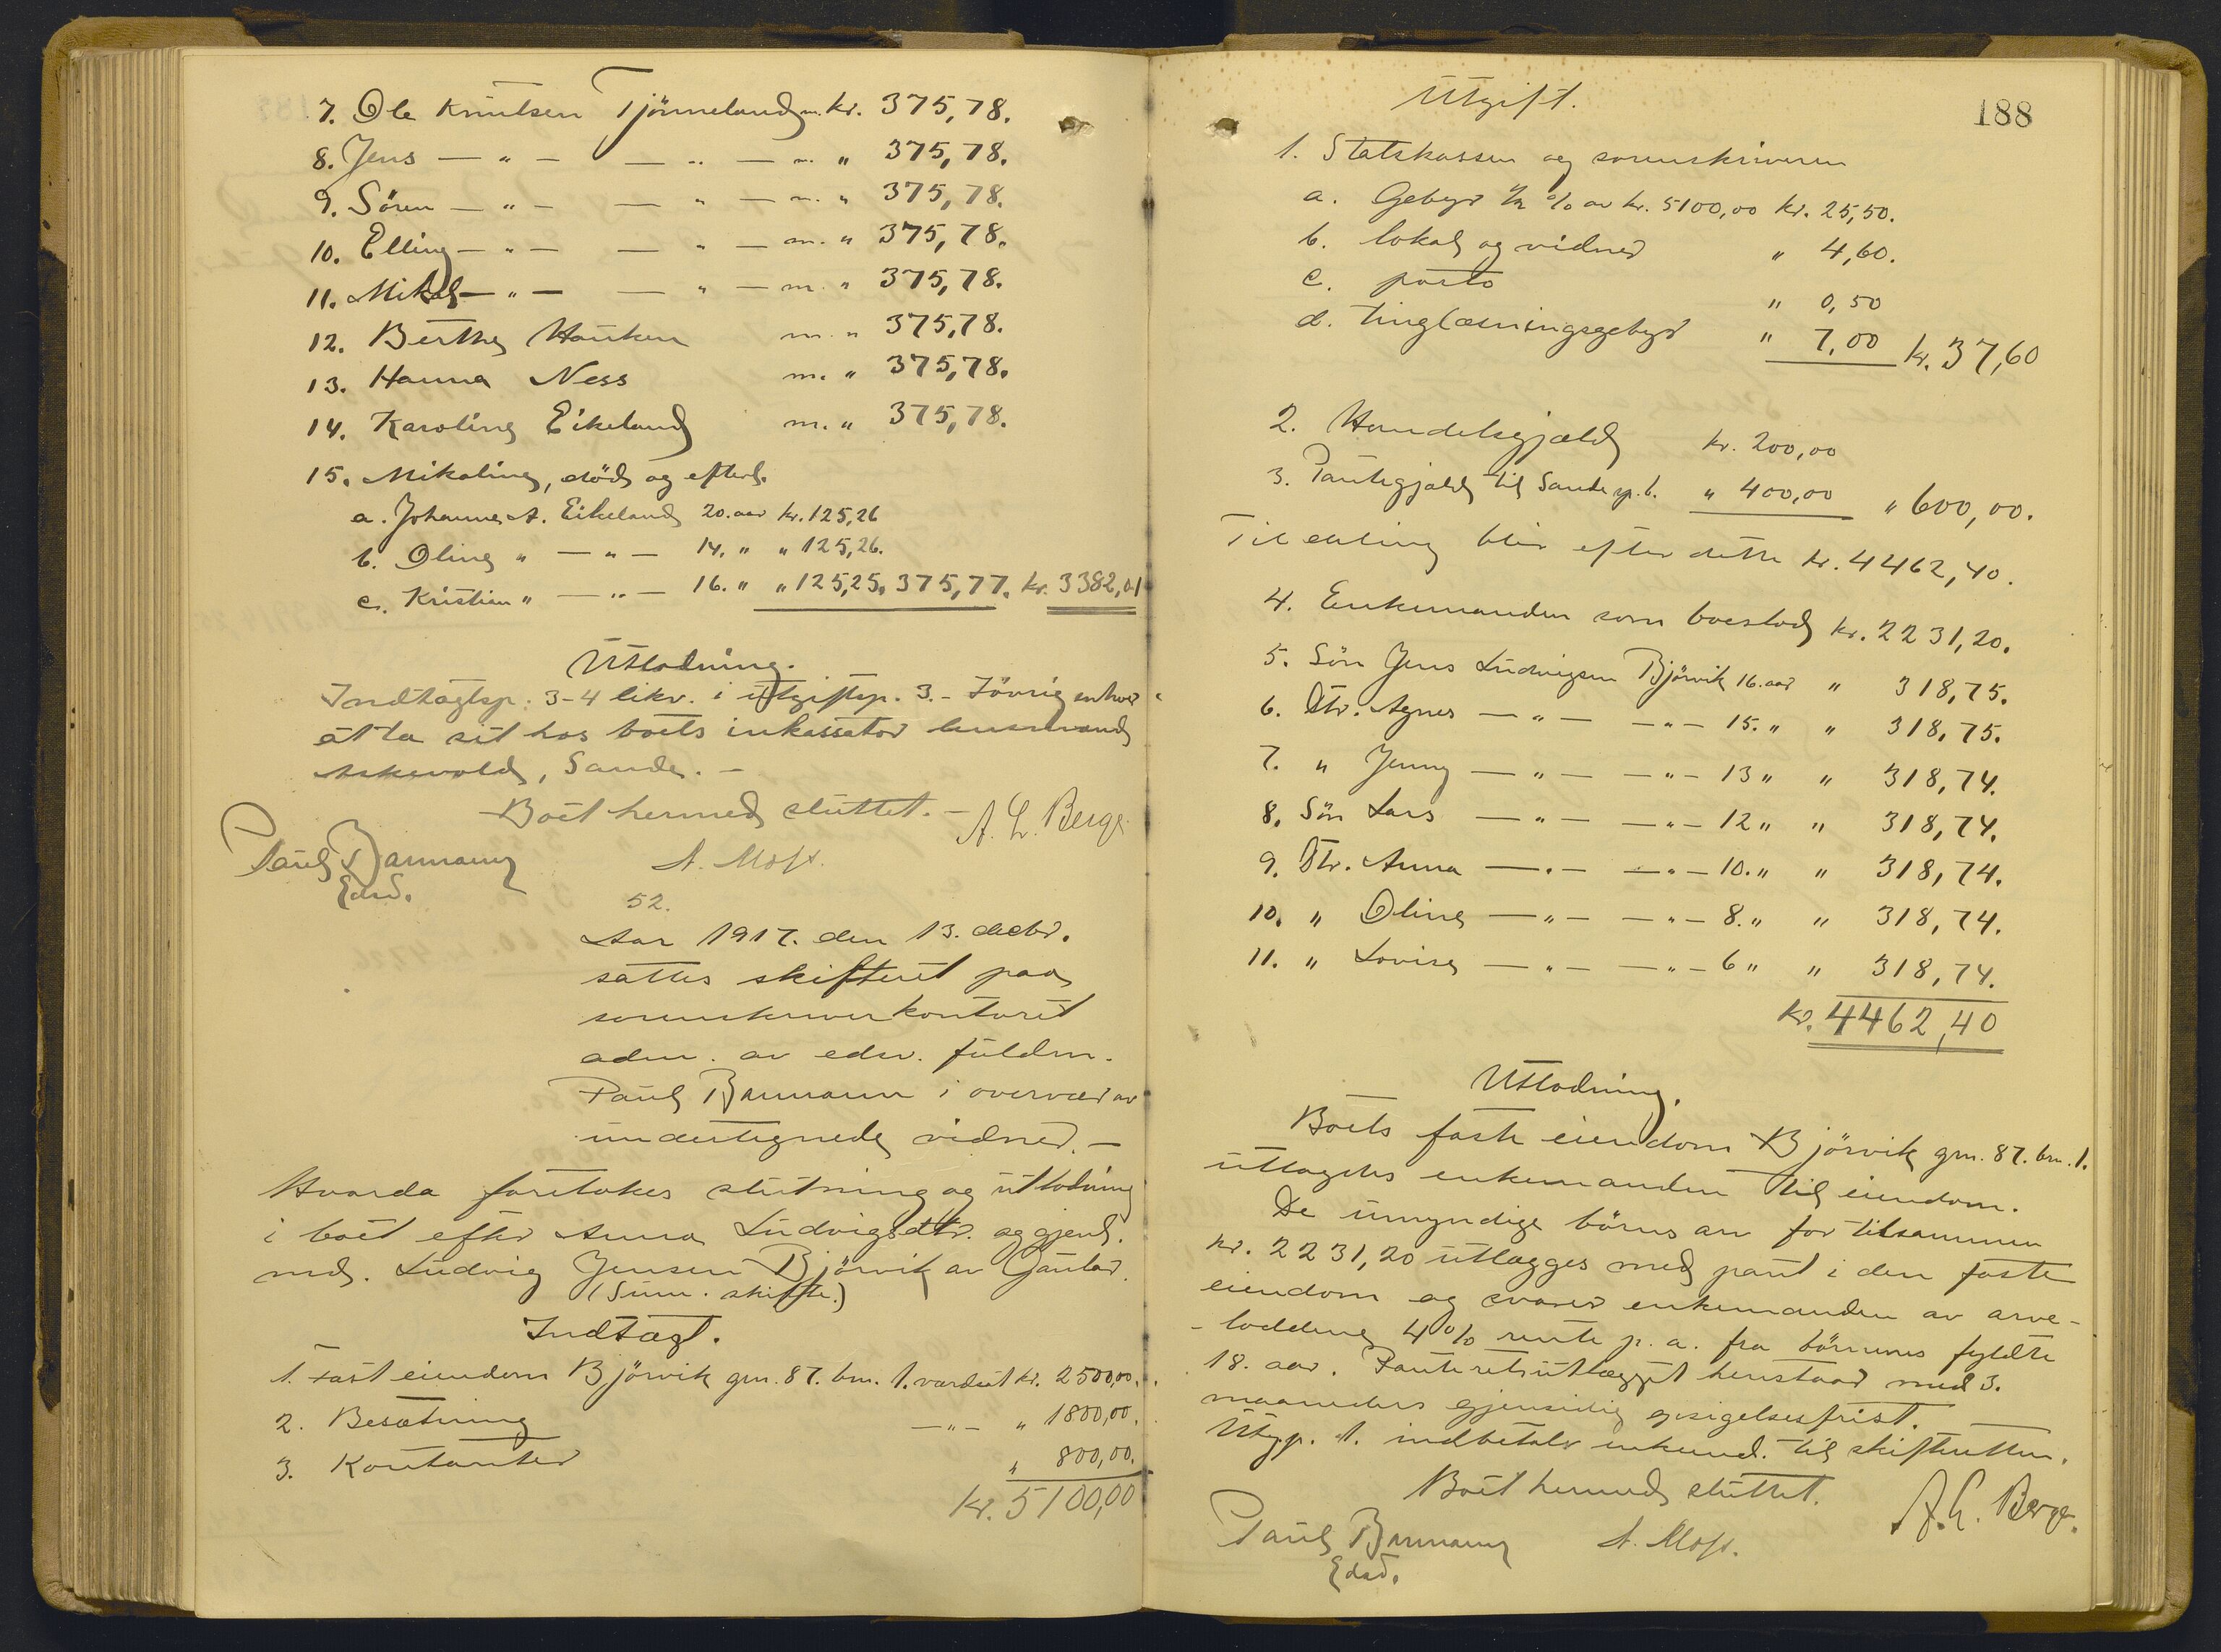 7. Ole Knutsen Tjönneland m. kr. 375,78.
8. Jens — " — — " — m. " 375,78.
9. Sören — " — — " — m. " 375,78.
10. Elling — " — — " — m. " 375,78.
11. Mikal — " — — " — m. " 375,78.
12. Berthe Hauken m. " 375,78.
13. Hanna Ness m. " 375,78.
14. Karoline Eikeland m. " 375,78.
15. Mikaline, död og efterl.
a. Johannes A. Eikeland 20. aar kr. 125,26
b. Oline " — " — 14. " " 125,26.
c. Kristian " — " — 16. " " 125,25. 375,77. kr. 3382,01
Utlodning.
Indtægtsp. 3-4 likv. i utgiftsp. 3. - Iövrig enhver
at ta sit hos boets inkassator lensmand
Askevold, Sande. -
Boet hermed sluttet. - A. L. Berge
Paul Barmann A. Moss.
Edsv.
52.
Aar 1917. den 13. decbr.
sattes skifteret paa
sorenskriverkontoret
adm. av edsv. fuldm.
Paul Barmann i overvær av
undertegnede vidner. -
Hvorda foretokes slutning og utlodning
i boet efter Anna Ludvigsdtr. og gjenl.
md. Ludvig Jensen Björvik av Gaular.
(Sum. skifte.)
Indtægt.
1. Fast eiendom Björvik gnr. 87. bnr. 1. værdsat kr. 2500,00.
2. Besætning — " — " 1800,00.
3. Kontanter " 800,00.
Kr. 5100,00
188
Utgift.
1. Statskassen og sorenskriveren
a. Gebyr ½ % av kr. 5100,00 kr. 25,50.
b. lokal og vidner " 4,60.
c. porto " 0,50
d. tinglæsningsgebyr " 7,00 kr. 37,60
2. Handelsgjæld kr. 200,00
3. Pantegjæld til Sande sp. b. " 400,00 " 600,00.
Til deling blir efter dette kr. 4462,40.
4. Enkemanden som boeslod kr. 2231,20.
5. Sön Jens Ludvigsen Björvik 16. aar " 318,75.
6. Dtr. Agnes — " — — " — 15. " " 318,75.
7. " Jenny — " — — " — 13 " " 318,74.
8. Sön Lars — " — — " — 12 " " 318,74.
9. Dtr. Anna — " — — " — 10. " " 318,74.
10. " Oline — " — — " — 8. " " 318,74.
11. " Lovise — " — — " — 6 " " 318,74.
kr. 4462,40
Utlodning.
Boets faste eiendom Björvik gnr. 87. bnr. 1.
utlægges enkemanden til eiendom.
De umyndige börns arv for tilsammen
kr. 2231,20 utlægges med pant i den faste
eiendom og svarer enkemanden av arve-
- loddene 4 % rente p. a. fra börnenes fyldte
18. aar. Panteretsutlægget henstaar med 3.
maaneders gjensidig opsigelsesfrist.
Utgp. 1. indbetaler enkemd. til skifteretten.
Boet hermed sluttet. A. L. Berge.
Paul Barmann A. Moss.
Edsv.